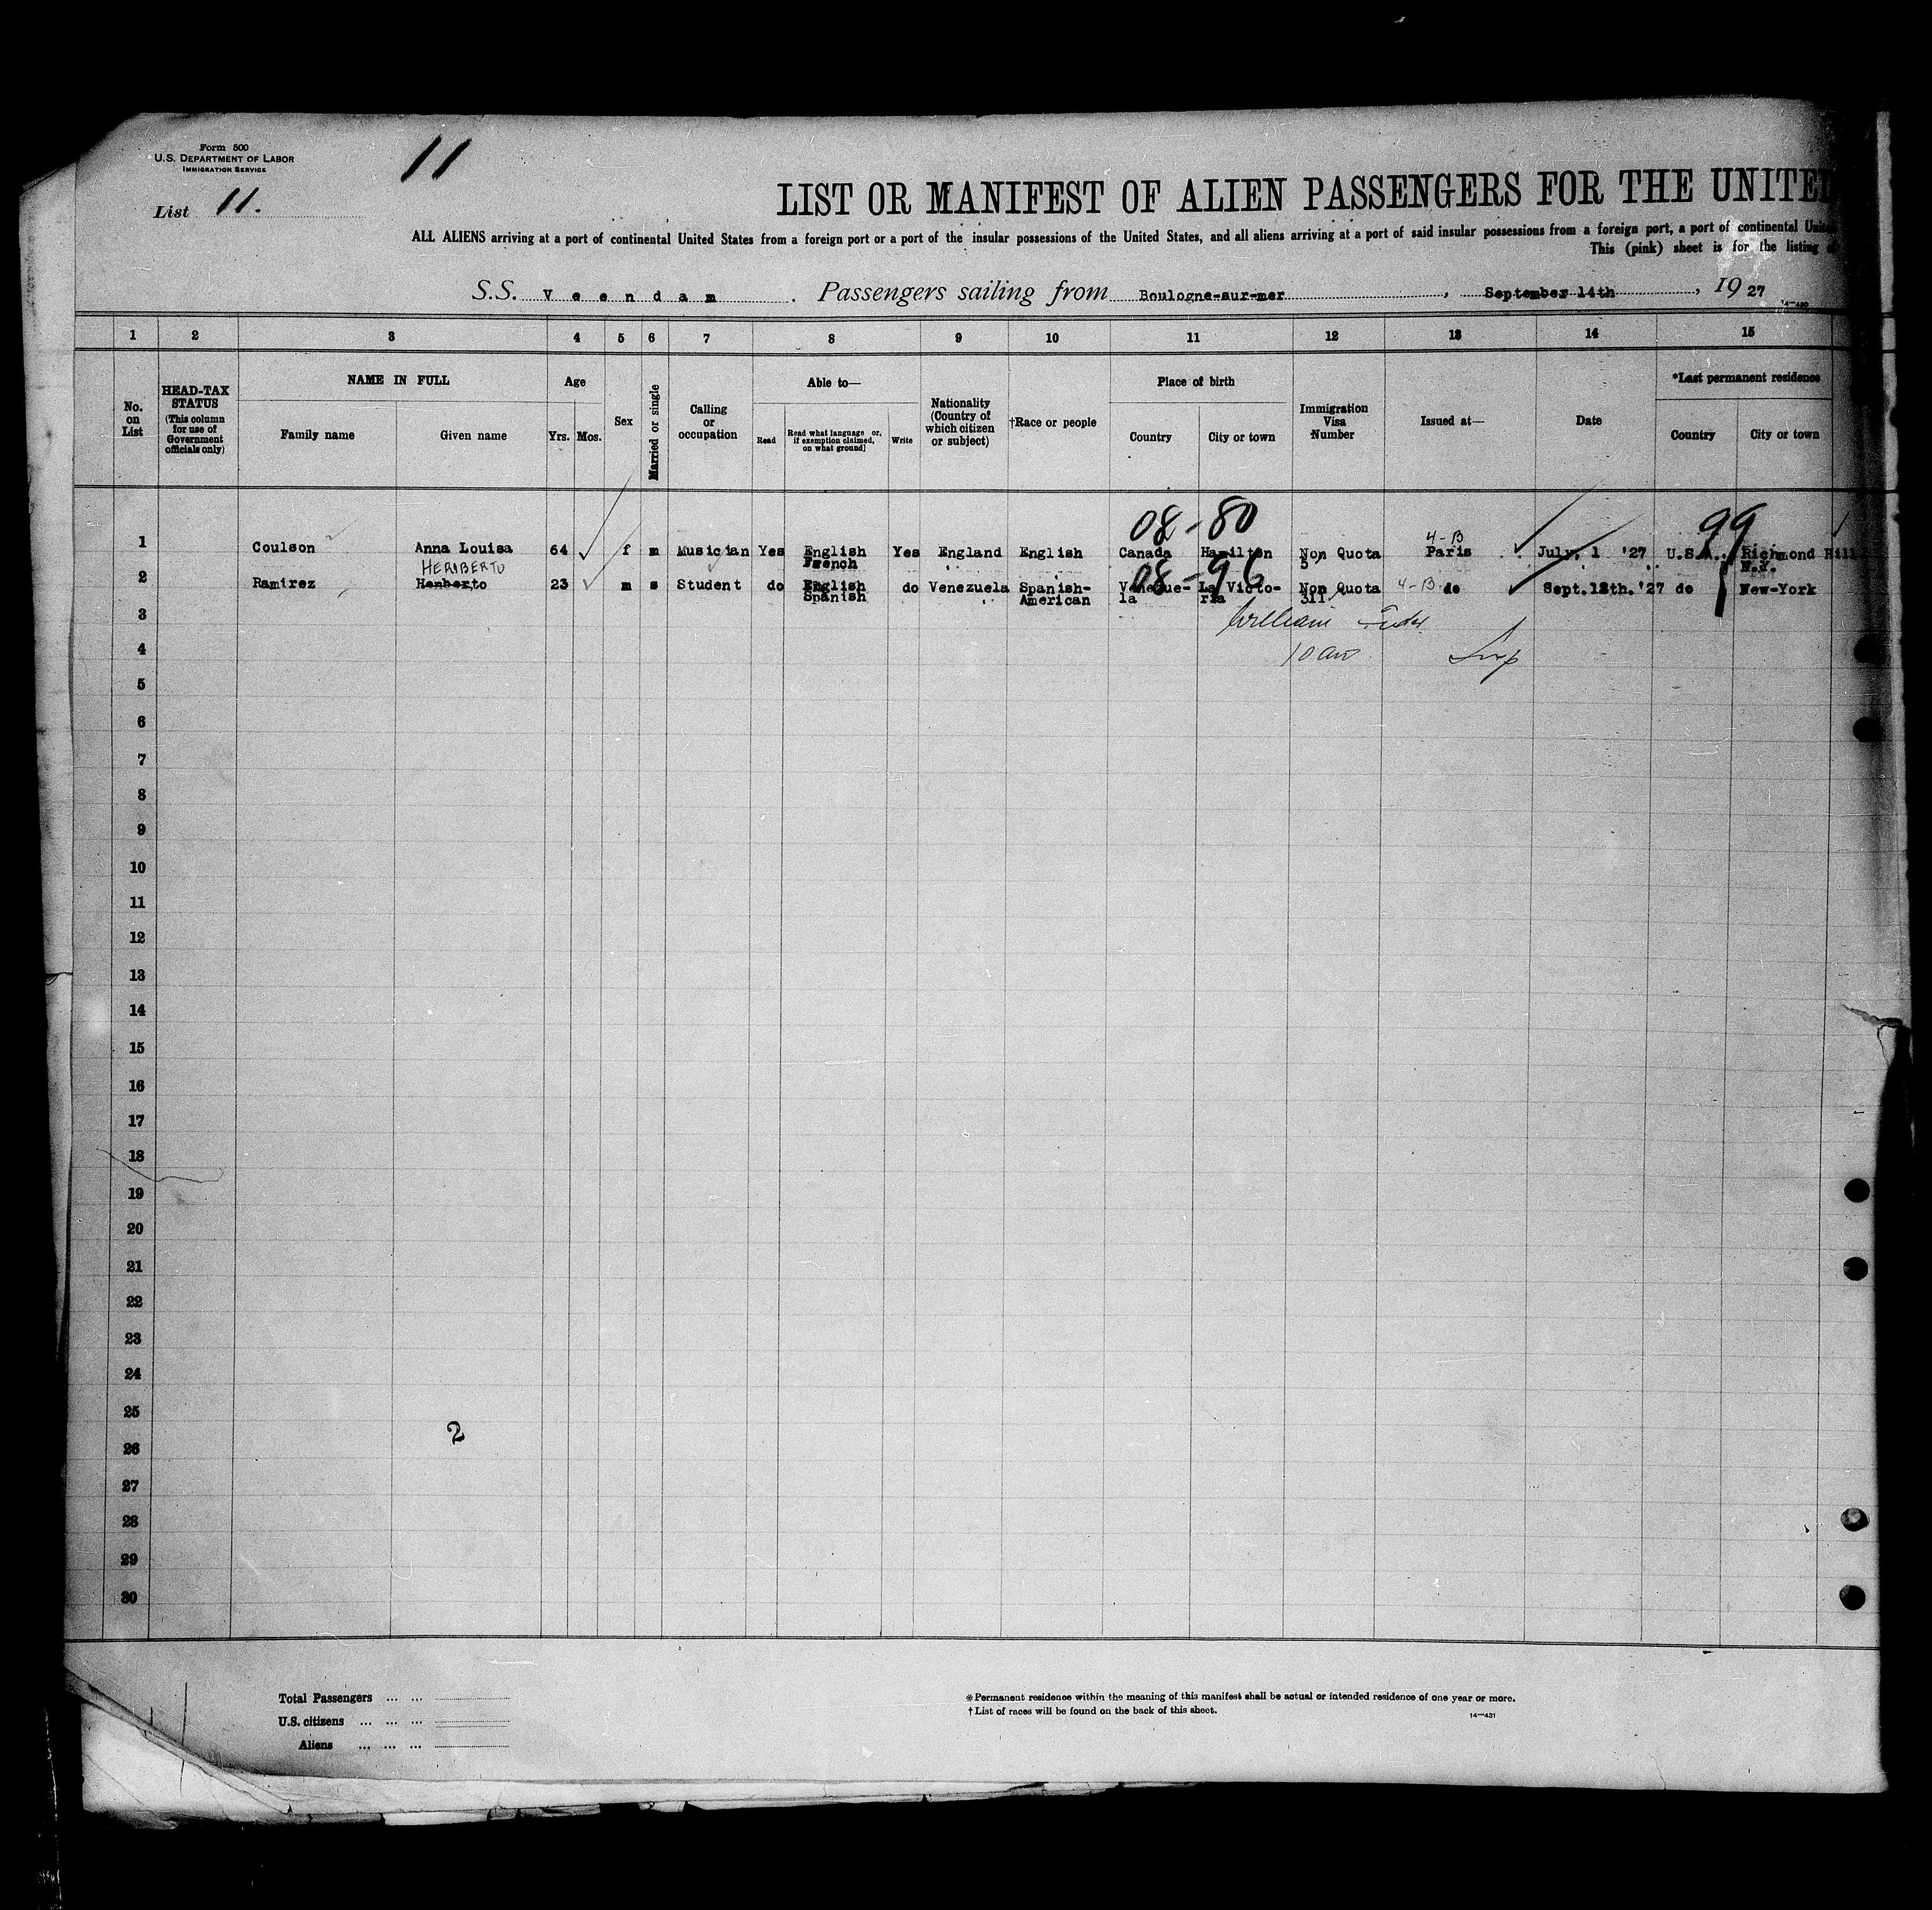 Form 500
U.S. DEPARTMENT OF LABOR
IMMIGRATION SERVICE
11
List 11.
LIST OR MANIFEST OF ALIEN PASSENGERS FOR THE UNITED
ALL ALIENS arriving at a port of continental United States from a foreign port or a port of the insular possessions of the United States, and all aliens arriving at a port of said insular possessions from a foreign port, a port of continental United
This (pink) sheet is for the listing
S.S. Veendam. Passengers sailing from Boulogne-sur-mer, September 14th, 1927
14-430
1 2 3 4 5 6 7 8 9 10 11 12 13 14 15
No. on List
HEAD-TAX STATUS
(This column for use of Government officials only)
NAME IN FULL
Family name
Given name
Age
Yrs.
Mos.
Sex
Married or single
Calling or occupation
Able to—
Read
Read what language or, if exemption claimed, on what ground]
Write
Nationality (Country of which citizen or subject)
†Race or people
Place of birth
Country
City or town
Immigration Visa Number
Issued at—
Date
*Last permanent residence
Country
City or town
08-80
99
4-B
1 Coulson Anna Louisa 64 f m Musician Yes English Yes England English Canada Hamilton Non Quota Paris July, 1 '27 U.S.A. Richmond Hill
French 5 N.Y.
HERIBERTO
08-96
2 Ramirez Hemberto 23 m s Student do English do Venezuela Spanish- Venezue- La Victo- Non Quota 4-B do Sept.12th.'27 do New-York
Spanish American la ria 311
3
William
4
10 am
5
6
7
8
9
10
11
12
13
14
15
16
17
18
19
20
21
22
23
24
25
2
26
27
28
29
30
Total Passengers ... ...
U.S. citizens ... ... ...
Aliens ... ... ...
*Permanent residence within the meaning of this manifest shall be actual or intended residence of one year or more.
†List of races will be found on the back of this sheet.
14-431